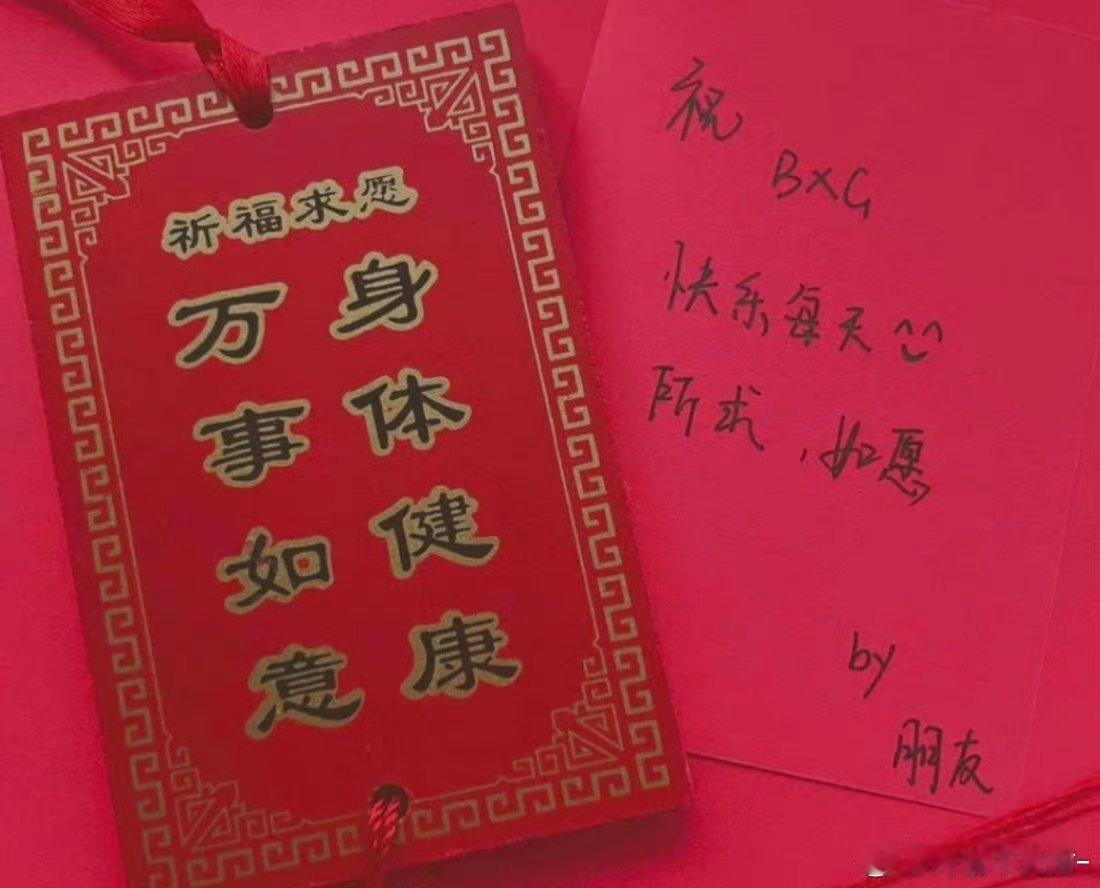 祈福求愿
身体健康
万事如意
祝
BXG
快乐每天^^
所求,如愿
by
朋友